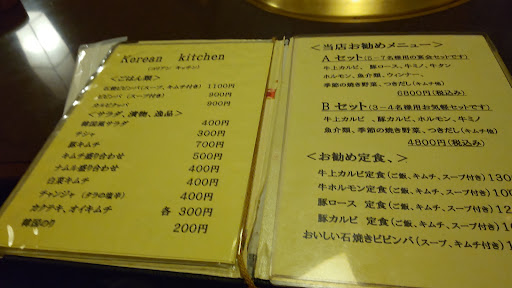 Korean kitchen
(コリアン キッチン)
<ごはん類>
石焼ビビンバ (スープ、キムチ付き) 1100円
ビビンバ (スープ付き) 900円
カルビクッパ 900円
<サラダ、漬物、逸品>
韓国風サラダ 400円
チシャ 300円
豚キムチ 700円
キムチ盛り合わせ 500円
ナムル盛り合わせ 400円
白菜キムチ 400円
チャンジャ (タラの塩辛) 400円
カクテキ、オイキムチ 各 300円
韓国のり 200円
<当店お勧めメニュー>
A セット(5-7名様用の宴会セットです)
牛上カルビ、豚ロース、牛ミノ、牛タン
ホルモン、魚介類、ウィンナー、
季節の焼き野菜、つきだし(キムチ他)
6800円(税込み)
B セット(3-4名様用お気軽セットです)
牛上カルビ、豚カルビ、ホルモン、牛ミノ
魚介類、季節の焼き野菜、つきだし(キムチ他)
4800円(税込み)
<お勧め定食、>
牛上カルビ定食(ご飯、キムチ、スープ付き) 130
牛ホルモン定食(ご飯、キムチ、スープ付き) 1
豚ロース 定食(ご飯、キムチ、スープ付き) 10
豚カルビ 定食(ご飯、キムチ、スープ付き) 1
おいしい石焼きビビンバ(スープ、キムチ付き) 1